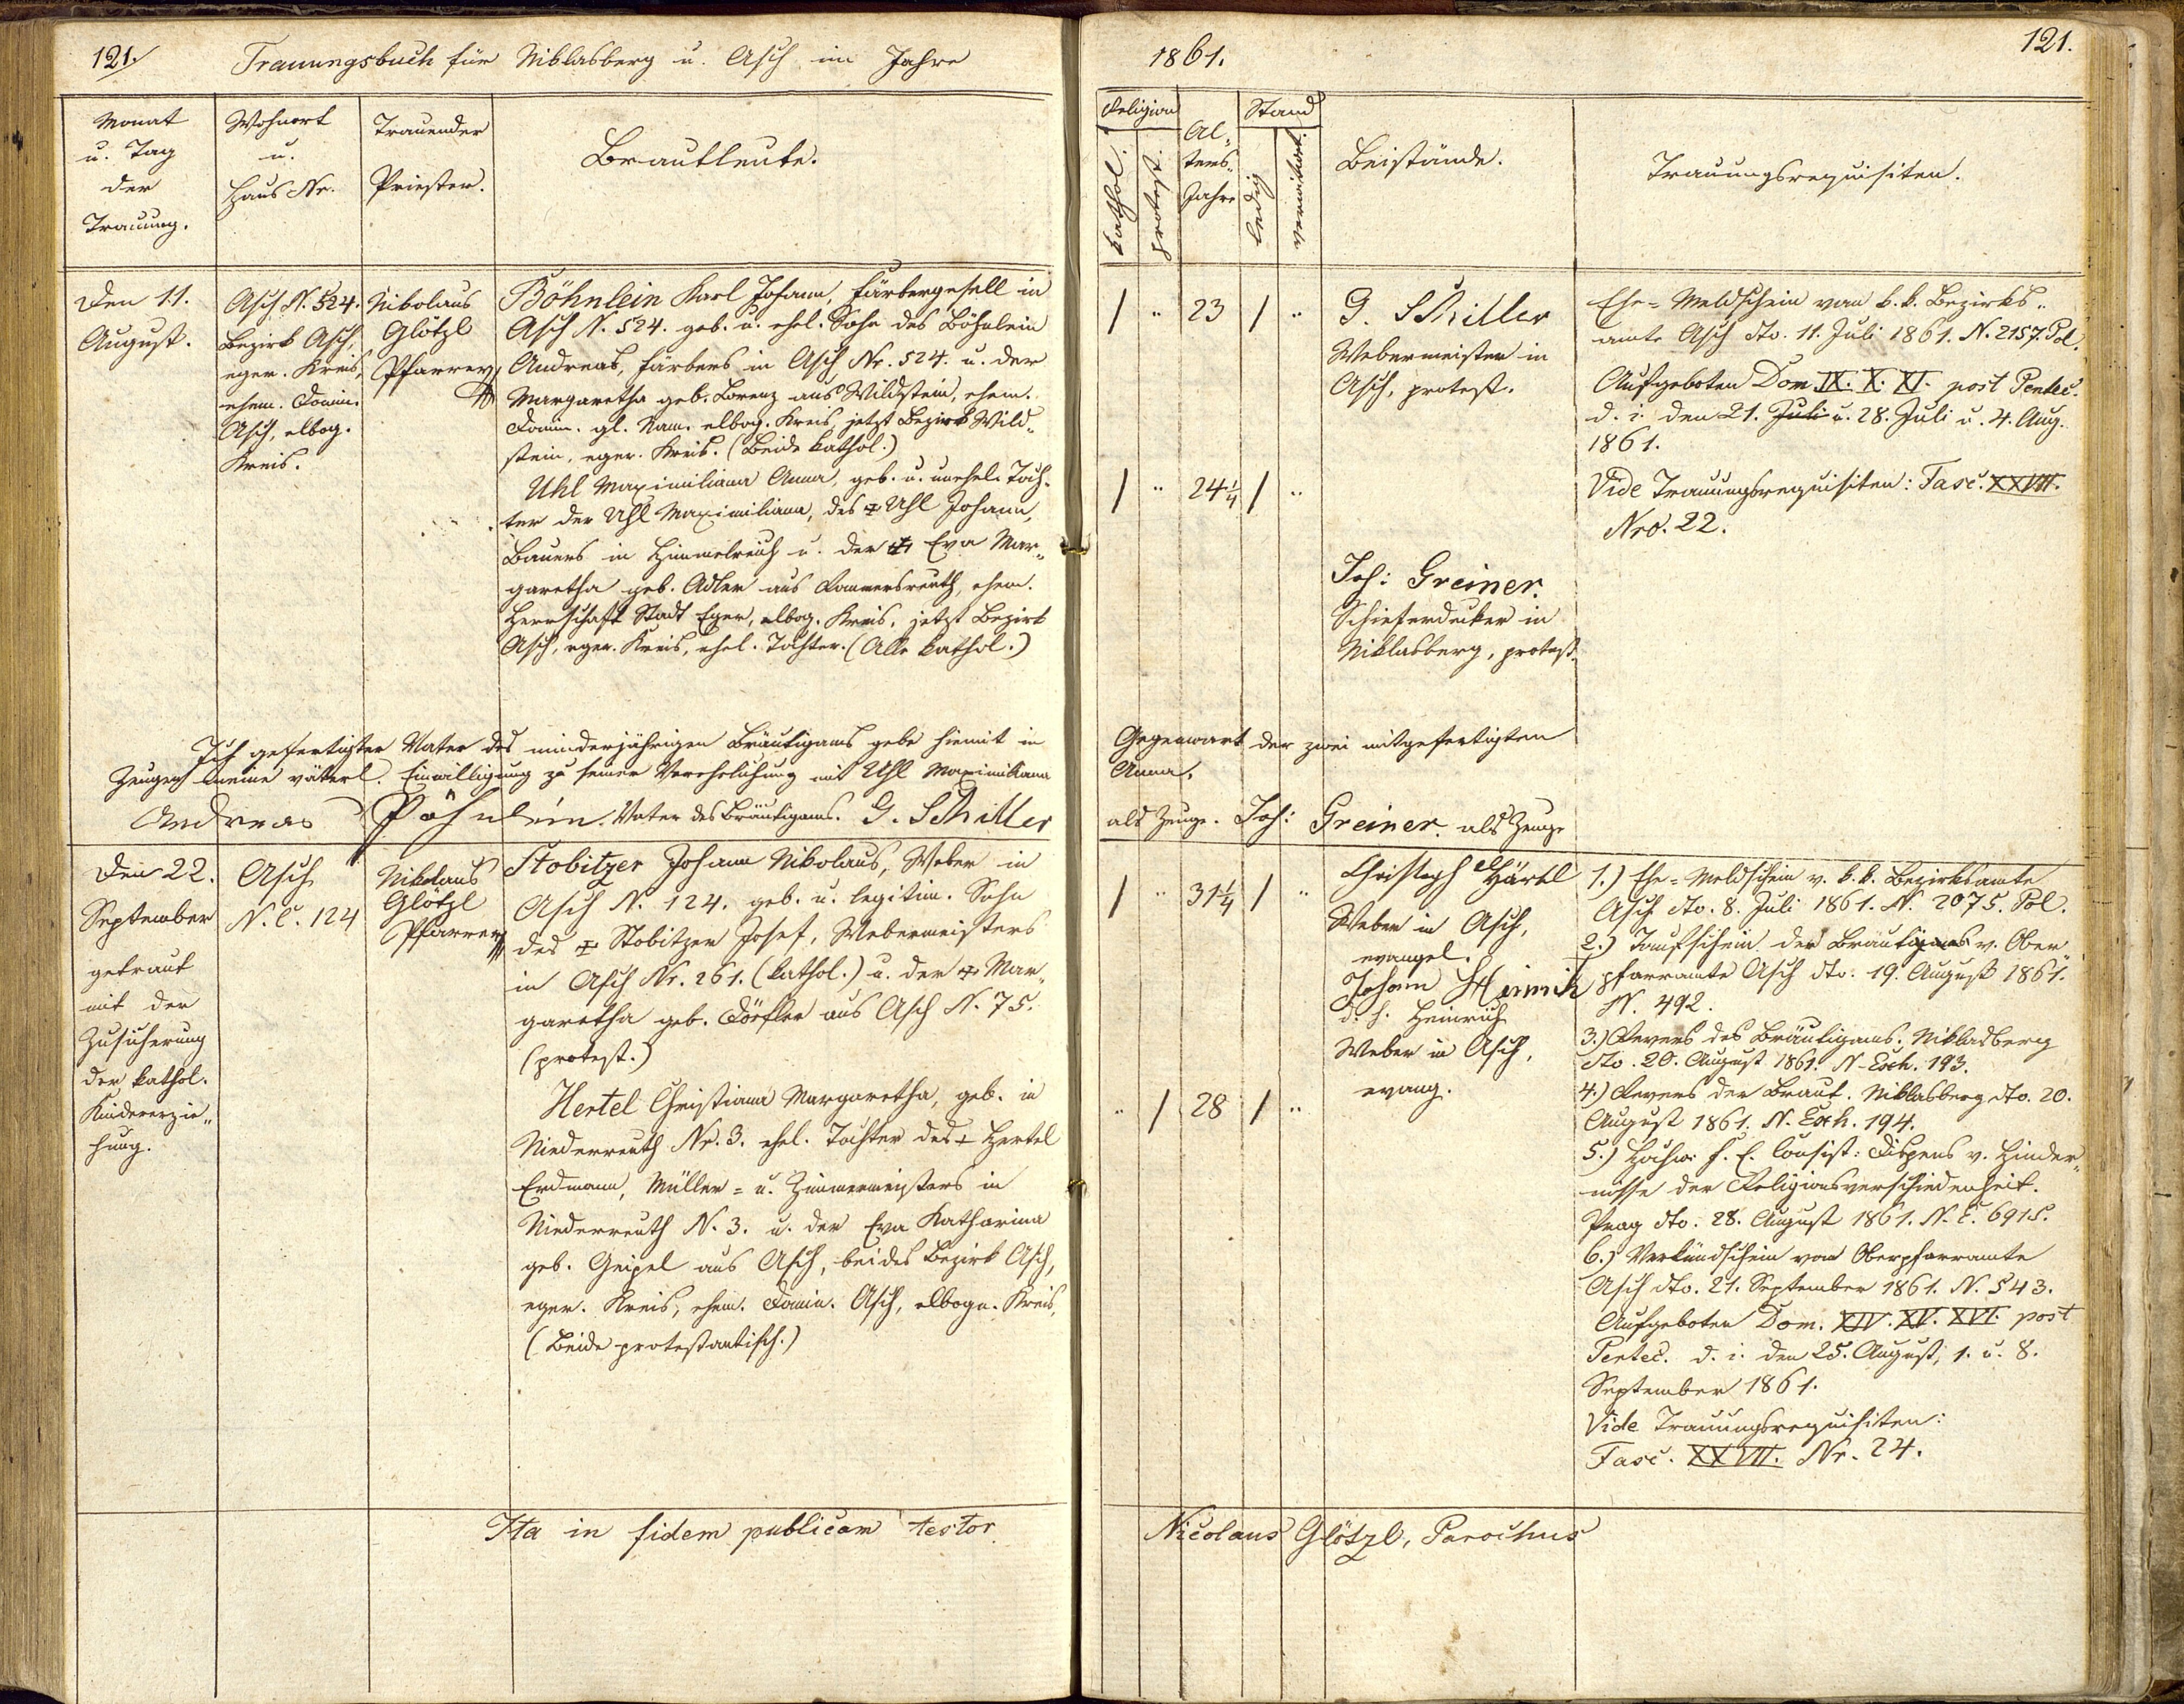 121.
Trauungsbuch für Niklasberg u. Asch im Jahre
Monat
u. Tag
der
Trauung.
Wohnort
u.
Haus Nr.
Trauender
Priester.
Brautleute.
Den 11.
August.
Asch N. 524.
Bezirk Asch,
eger. Kreis,
ehem. Domin.
Asch, elbog.
Kreis.
Nikolaus
Glötzl
Pfarrer
Böhnlein Karl Johann, Färbergesell in
Asch N. 524. geb. u. ehel. Sohn des Böhnlein
Andreas, Färbers in Asch Nr. 524. u. der
Margaretha geb. Lorenz aus Wildstein, ehem.
Domin. gl. Nam. elbog. Kreis, jetzt Bezirk Wild„
stein, eger. Kreis. (Beide kathol.)
Uhl Maximiliana Anna, geb. u. unehel. Toch„
ter der Uhl Maximiliana, des ‡ Uhl Johann,
Bauers in Himmelreich u. der ‡ Eva Mar„
garetha geb. Adler aus Rommersreuth, ehem.
Herrschaft Stadt Eger, elbog. Kreis, jetzt Bezirk
Asch, eger. Kreis, ehel. Tochter. (Alle kathol.)
Ich gefertigter Vater des minderjährigen Bräutigams gebe hiemit in
Zeugen meine väterl. Einwilligung zu seiner Verehelichung mit Uhl Maximiliana
Andreas Pöhnlein. Vater des Bräutigams. G. Schiller
Den 22.
September
getraut
mit der
Zusicherung
der kathol.
Kindererzie„
hung.
Asch
N. C. 124
Nikolaus
Glötzl
Pfarrer
Stobitzer Johann Nikolaus, Weber in
Asch N. 124. geb. u. legitim. Sohn
des ‡ Stobitzer Josef, Webermeisters
in Asch Nr. 261. (kathol.) u. der ‡ Mar„
garetha geb. Dörfler aus Asch N. 75.
(protest.)
Hertel Christiana Margaretha, geb. in
Niederreuth Nr. 3. ehel. Tochter des ‡ Hertel
Erdmann, Müller = u. Zimmermeisters in
Niederreuth N. 3. u. der Eva Katharina
geb. Geipel aus Asch, beides Bezirk Asch,
eger. Kreis, ehem. Domin. Asch, elbogn. Kreis,
(Beide protestantisch.)
Ita in fidem publicam testor
1861.
121.
Religion
kathol.
protest.
Al„
ters„
Jahre
Stand
ledig
verwittwt.
Beistände.
Trauungsrequisiten.
/ „ 23 / „
G. Schiller
Webermeister in
Asch, protest.
/ „ 24¼ / „
Joh: Greiner.
Schieferdecker in
Niklasberg, protest.
Ehe=Meldschein vom k. k. Bezirks„
amte Asch dto. 11. Juli 1861. N. 2157. Pol.
Aufgeboten Dom. IX. X. XI. post Pentec.
d. i. den 21. Juli u. 28. Juli u. 4. Aug.
1861.
Vide Trauungsrequisiten: Fasc. XXVII.
Nro. 22.
Gegenwart der zwei mitgefertigten
Anna.
als Zeuge. Joh: Greiner. als Zeuge
/ „ 31¼ / „
Christoph Härtel
Weber in Asch,
evangel.
Johann
d. h. Heinrich
Weber in Asch,
evang.
„ / 28 / „
1.) Ehe=Meldschein v. k. k. Bezirksamte
Asch dto. 8. Juli 1861. N. 2075. Pol.
2.) Taufschein der Bräutigams v. Ober„
pfarramte Asch dto. 19. August 1861.
N. 492.
3.) Revers des Bräutigams. Niklasberg
dto. 20. August 1861. N. Exh. 193.
4.) Revers der Braut. Niklasberg dto. 20.
August 1861. N. Exh. 194.
5.) Hochw. f. e. Consist: Dispens v. Hinder„
nisse der Religionsverschiedenheit.
Prag dto. 28. August 1861. N. E. 6915.
6.) Verkündschein vom Oberpfarramte
Asch dto. 21. September 1861. N. 543.
Aufgeboten Dom. XIV. XV. XVI. post
Pentec. d. i. den 25. August, 1. u. 8.
September 1861.
Vide Trauungsrequisiten:
Fasc. XXVII. Nr. 24.
Nicolaus Glötzl, Parochus